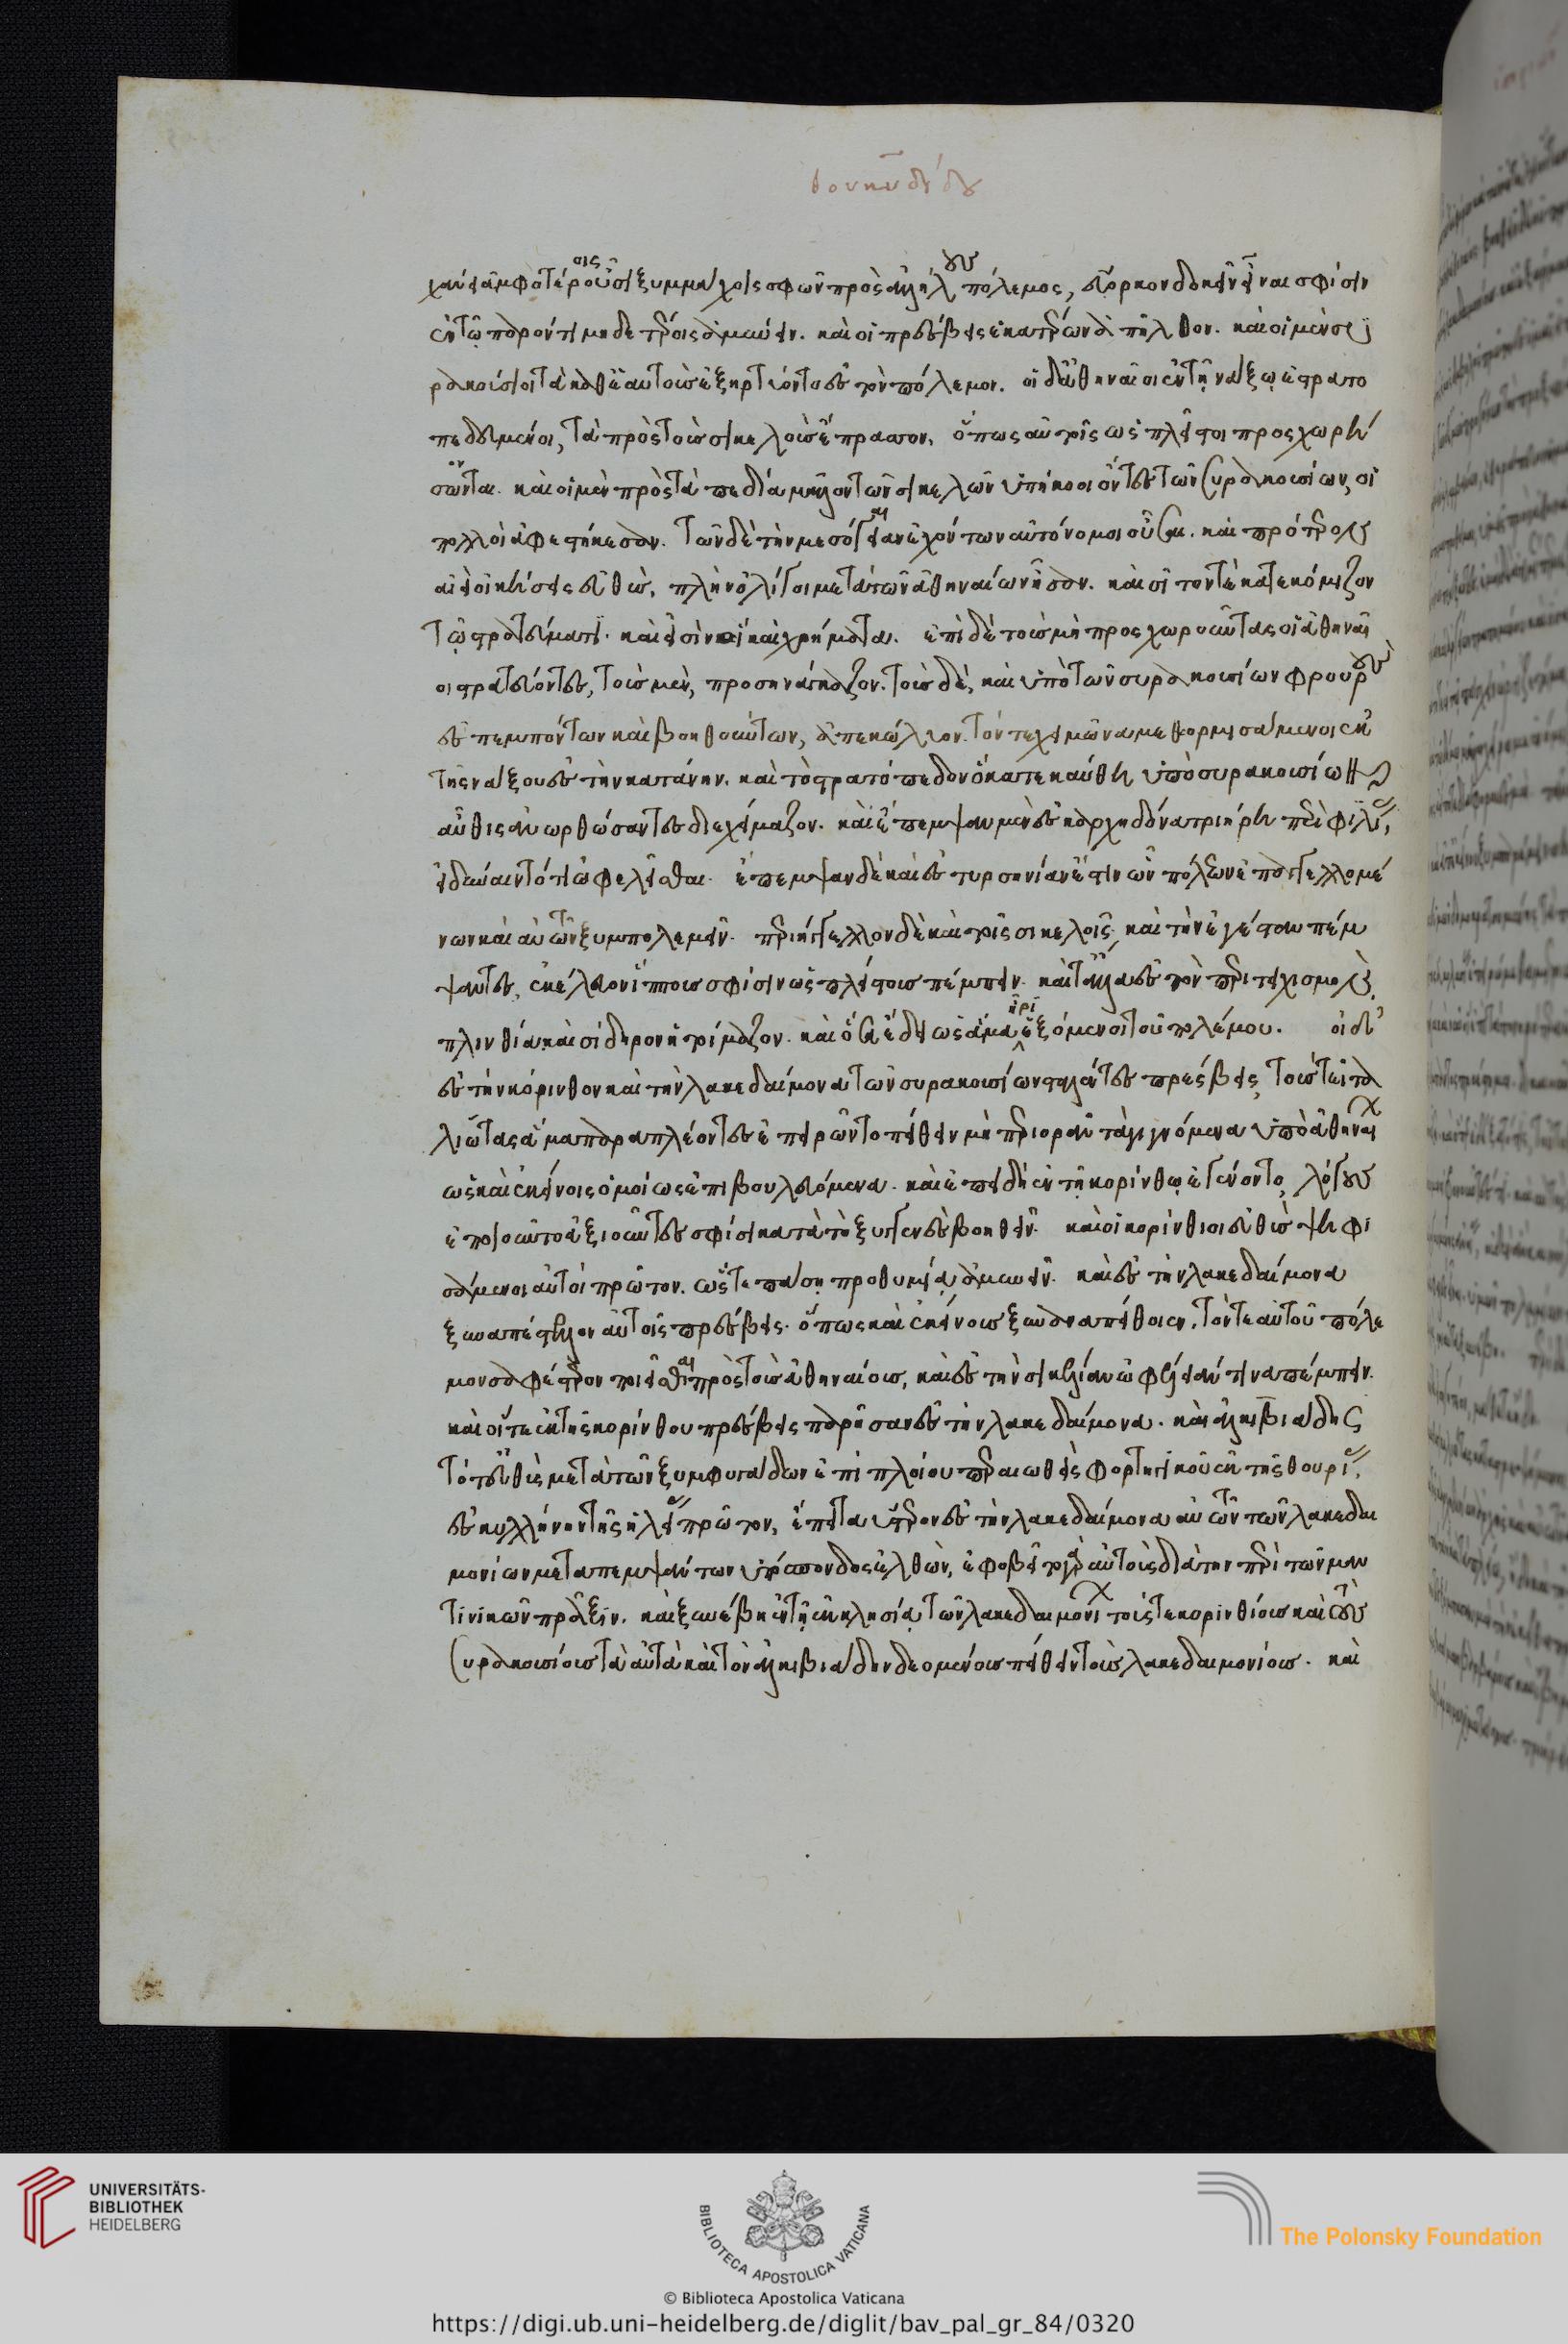 θουκυδίδου
χάνει ἀμφοτέροις οὖσι ξυμμάχοις σφῶν πρὸς ἀλλήλους πόλεμος, εὔορκον δοκεῖν εἶναι σφίσιν
ἐν τῷ παρόντι μηδετέροις ἀμύνειν. καὶ οἱ πρέσβεις ἑκατέρων ἀπῆλθον. καὶ οἱ μὲν συ
ρακόσιοι τὰ καθ' ἑαυτοὺς ἐξηρτύοντο ἐς τὸν πόλεμον. οἱ δ' ἀθηναῖοι ἐν τῇ νάξῳ ἐστρατο
πεδευμένοι, τὰ πρὸς τοὺς σικελοὺς ἔπρασσον, ὅπως αὐτοῖς ὡς πλεῖστοι προσχωρή
σωνται. καὶ οἱ μὲν πρὸς τὰ πεδία μᾶλλον τῶν σικελῶν ὑπήκοοι ὄντες τῶν συρακουσίων, οἱ
πολλοὶ ἀφεστήκεσαν. τῶν δὲ τὴν μεσόγειαν ἐχόντων αὐτόνομοι οὖσαι. καὶ πρότερον
αἰεὶ οἰκήσεις εὐθὺς, πλὴν ὀλίγοι μετὰ τῶν ἀθηναίων ἦσαν. καὶ σῖτόν τε κατεκόμιζον
τῷ στρατεύματι. καὶ εἰσὶν οἳ καὶ χρήματα. ἐπὶ δὲ τοὺς μὴ προσχωροῦντας οἱ ἀθηναῖ
οι στρατεύοντες, τοὺς μὲν, προσηνάγκαζον. τοὺς δὲ, καὶ ὑπὸ τῶν συρακουσίων φρουροὺς
ἐσπεμπόντων καὶ βοηθούντων, ἀπεκώλυον. τόν τε χειμῶνα μεθορμισάμενοι ἐκ
τῆς νάξου ἐς τὴν κατάνην. καὶ τὸ στρατόπεδον ὃ κατεκαύθη ὑπὸ συρακουσίων
αὖθις ἀνορθώσαντες διεχείμαζον. καὶ ἔπεμψαν μὲν ἐς καρχηδόνα τριήρη περὶ φιλίας,
εἰ δύναιντό τι ὠφελεῖσθαι. ἔπεμψαν δὲ καὶ ἐς τυρσηνίαν ἔστιν ὧν πόλεων ἐπαγγελλομέ
νων καὶ αὐτῶν ξυμπολεμεῖν. περιήγγελλον δὲ καὶ τοῖς σικελοῖς. καὶ τὴν ἐγέσταν πέμ
ψαντες, ἐκέλευον ἵππους σφίσιν ὡς πλείστους πέμπειν. καὶ τἄλλα ἐς τὸν περιτειχισμὸν
πλινθία. καὶ σίδηρον ἡτοίμαζον. καὶ ὅσα ἔδει ὡς ἅμα ἦρι ἑξόμενοι τοῦ πολέμου. οἱ δ'
ἐς τὴν κόρινθον καὶ τὴν λακεδαίμονα τῶν συρακουσίων σταλέντες πρέσβεις, τούς τε ἰτα
λιώτας ἅμα παραπλέοντες ἐπειρῶντο πείθειν μὴ περιορᾶν τὰ γιγνόμενα ὑπὸ ἀθηναίων
ὡς καὶ ἐκείνοις ὁμοίως ἐπιβουλευόμενα. καὶ ἐπειδὴ ἐν τῇ κορίνθῳ ἐγένοντο, λόγους
ἐποιοῦντο ἀξιοῦντες σφίσι κατὰ τὸ ξυγγενὲς βοηθεῖν. καὶ οἱ κορίνθιοι εὐθὺς ψηφι
σάμενοι αὐτοὶ πρῶτον. ὥστε πάσῃ προθυμίᾳ ἀμύνειν. καὶ ἐς τὴν λακεδαίμονα
ξυναπέστελλον αὐτοῖς πρέσβεις. ὅπως καὶ ἐκείνους ξυναναπείθοιεν, τόν τε αὐτοῦ πόλε
μον σαφέστερον ποιεῖσθαι πρὸς τοὺς ἀθηναίους, καὶ ἐς τὴν σικελίαν ὠφέλειάν τινα πέμπειν.
καὶ οἵ τε ἐκ τῆς κορίνθου πρέσβεις παρῆσαν ἐς τὴν λακεδαίμονα. καὶ ἀλκιβιάδης
τότ' εὐθὺς μετὰ τῶν ξυμφυγάδων ἐπὶ πλοίου περαιωθεὶς φορτηγικοῦ ἐκ τῆς θουρίας,
ἐς κυλλήνην τῆς ἠλείας πρῶτον, ἔπειτα ὕστερον ἐς τὴν λακεδαίμονα αὐτῶν τῶν λακεδαι
μονίων μεταπεμψάντων ὑπόσπονδος ἐλθὼν, ἐφοβεῖτο γὰρ αὐτοὺς διὰ τὴν περὶ τῶν μαν
τινικῶν πρᾶξιν. καὶ ξυνέβη ἐν τῇ ἐκκλησίᾳ τῶν λακεδαιμονίων τούς τε κορινθίους καὶ τοὺς
συρακουσίους τὰ αὐτὰ καὶ τὸν ἀλκιβιάδην δεομένους πείθειν τοὺς λακεδαιμονίους. καὶ
UNIVERSITÄTS-
BIBLIOTHEK
HEIDELBERG
BIBLIOTECA APOSTOLICA VATICANA
The Polonsky Foundation
© Biblioteca Apostolica Vaticana
https://digi.ub.uni-heidelberg.de/diglit/bav_pal_gr_84/0320